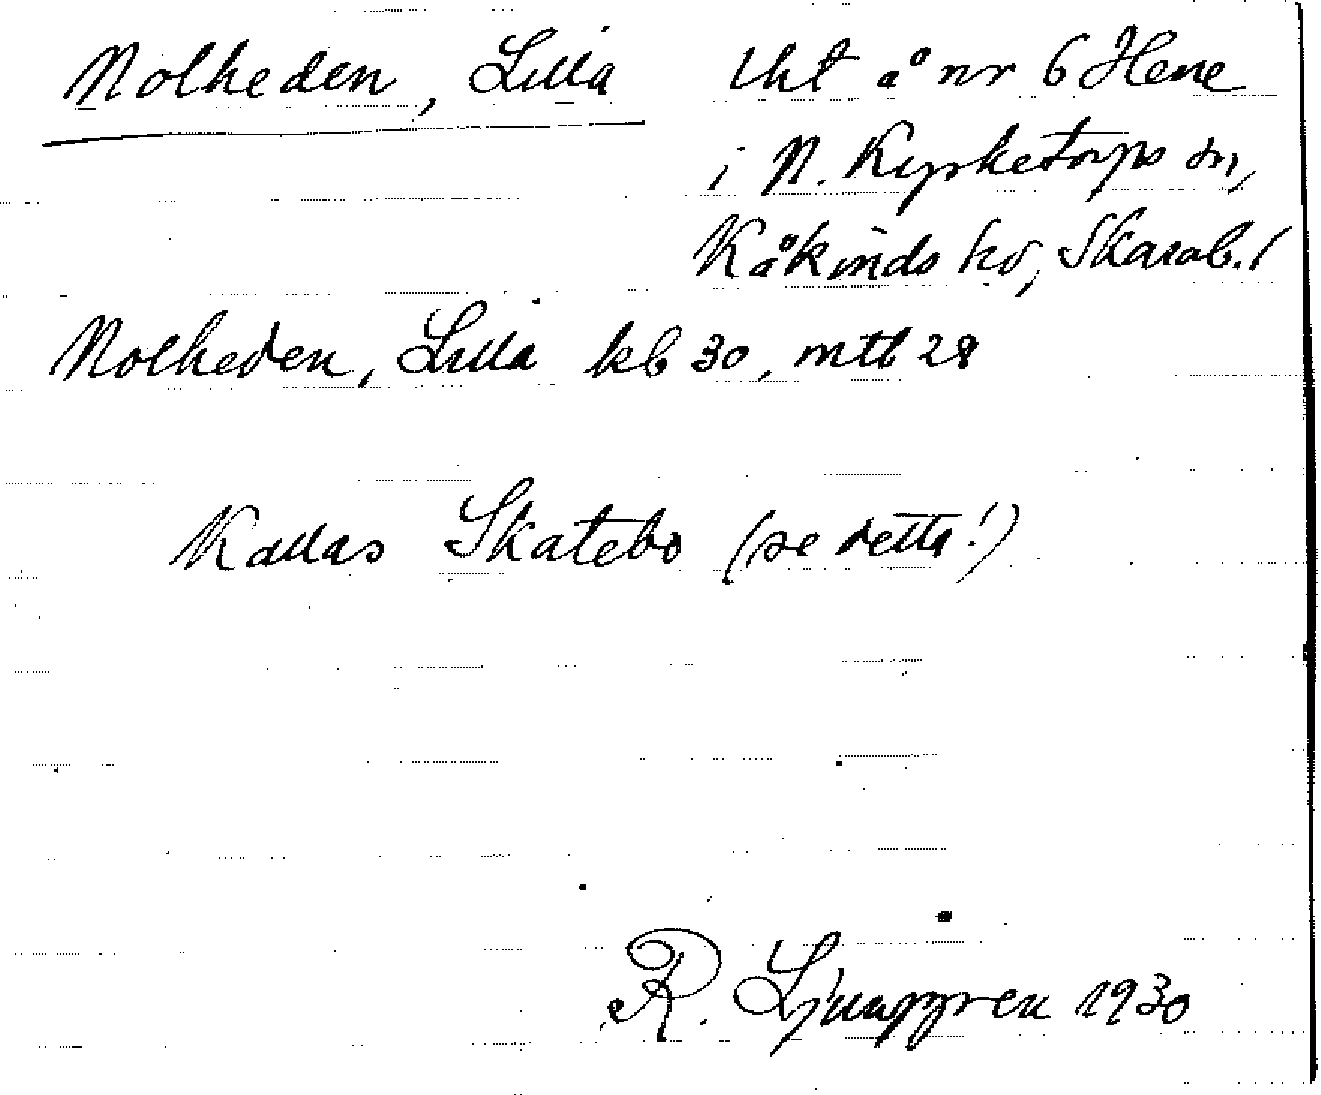 Nolheden, Lilla lht å nr 6 Hene
i N. Kyrketorps sn,
Kåkinds hd, Skarab. l
Nolheden, Lilla kb 30, mtb 28
Kallas Skatebo (se detta!)
R. Ljunggren 1930